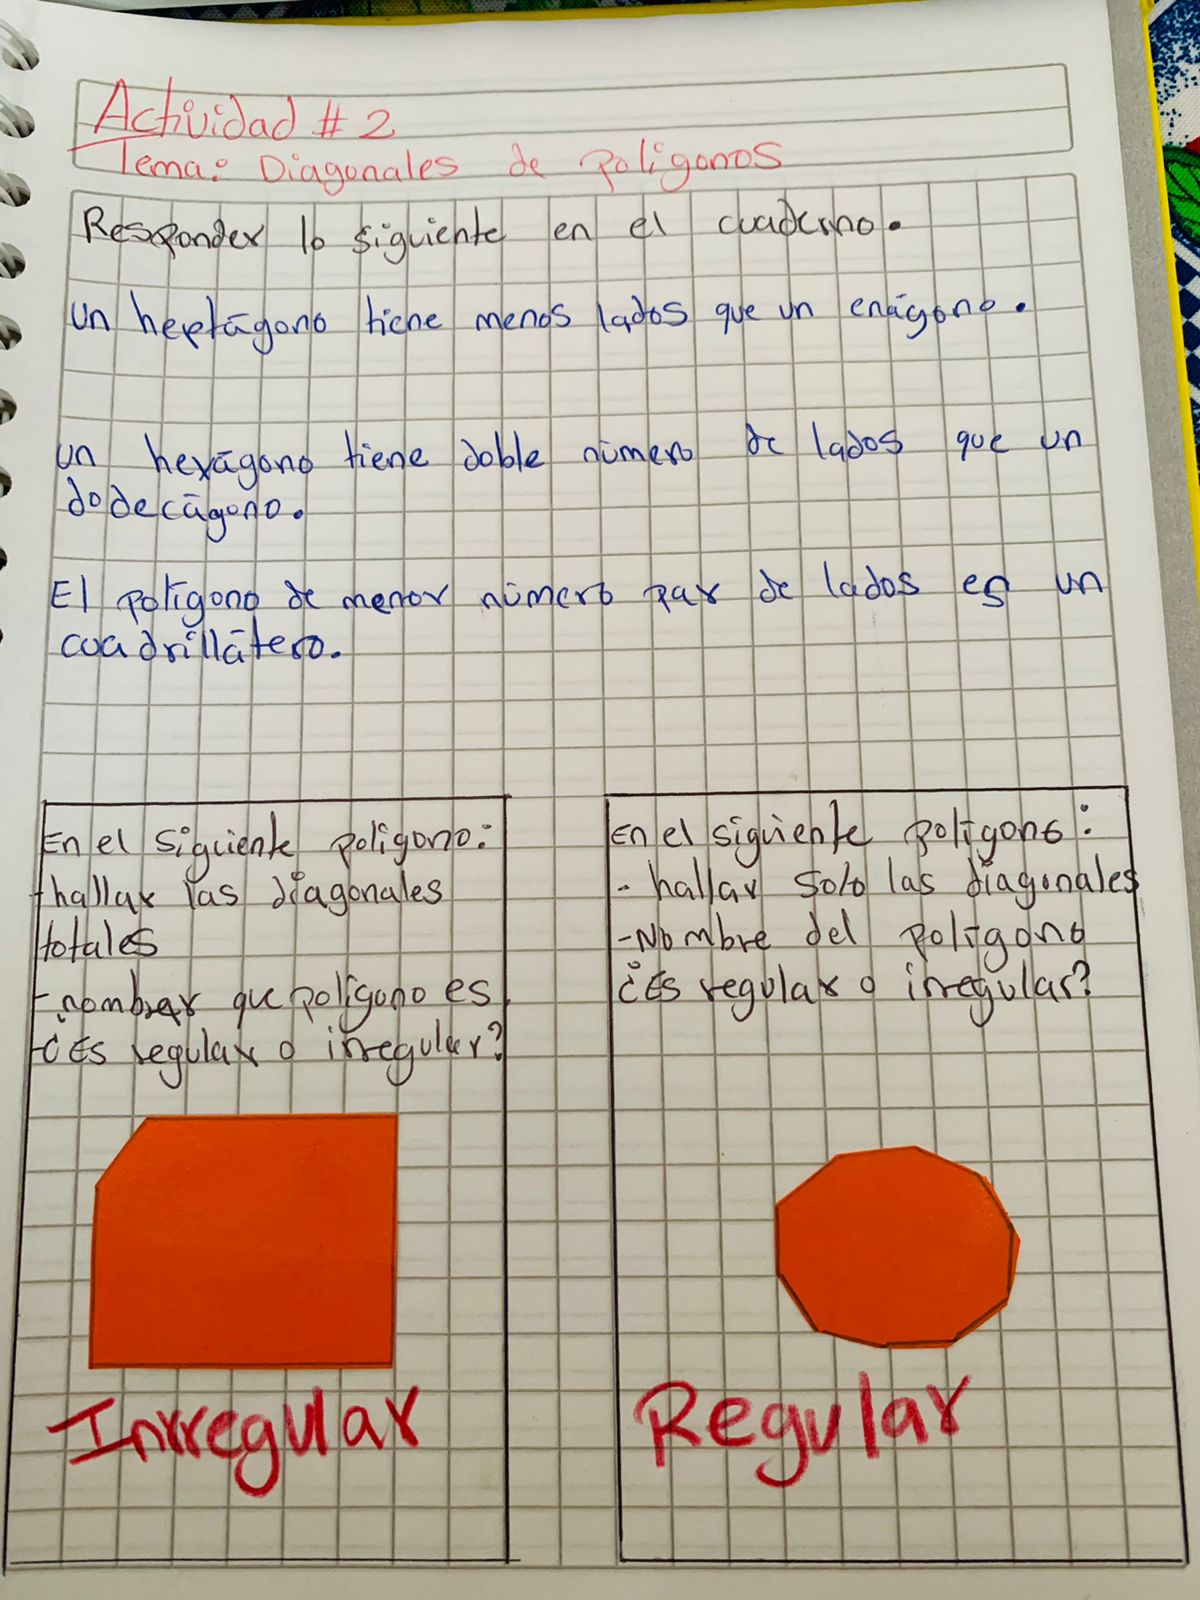 Actividad # 2
Tema: Diagonales de polígonos
Responder lo siguiente en el cuaderno.
Un heptágono tiene menos lados que un enágono.
un hexágono tiene doble número de lados que un
dodecágono.
El polígono de menor número par de lados es un
cuadrillátero.
En el siguiente polígono:
-hallar las diagonales
totales
-nombrar que polígono es
-¿Es regular o irregular?
Irregular
En el siguiente polígono:
- hallar solo las diagonales
-Nombre del polígono
¿Es regular o irregular?
Regular